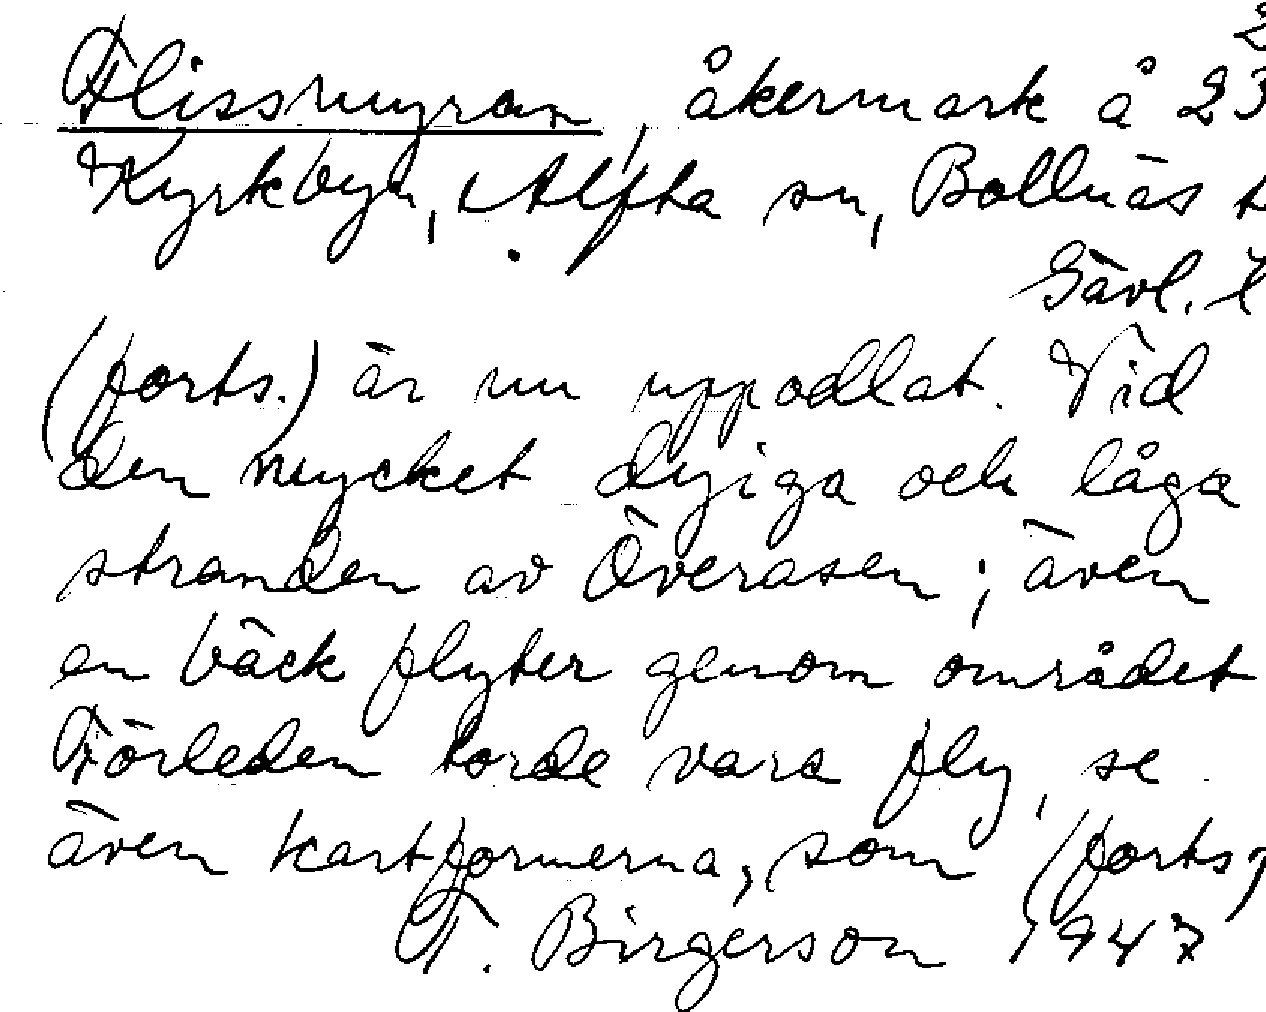 2
Flissmyran, åkermark å 23
Kyrkbyn, Alfta sn, Bollnäs t
Gävl. l
(forts.) är nu uppodlat. Vid
den mycket dyiga och låga
stranden av Överasen; även
en bäck flyter genom området
Förleden torde vara fly, se
även kartformerna, som (forts)
F. Birgerson 1947